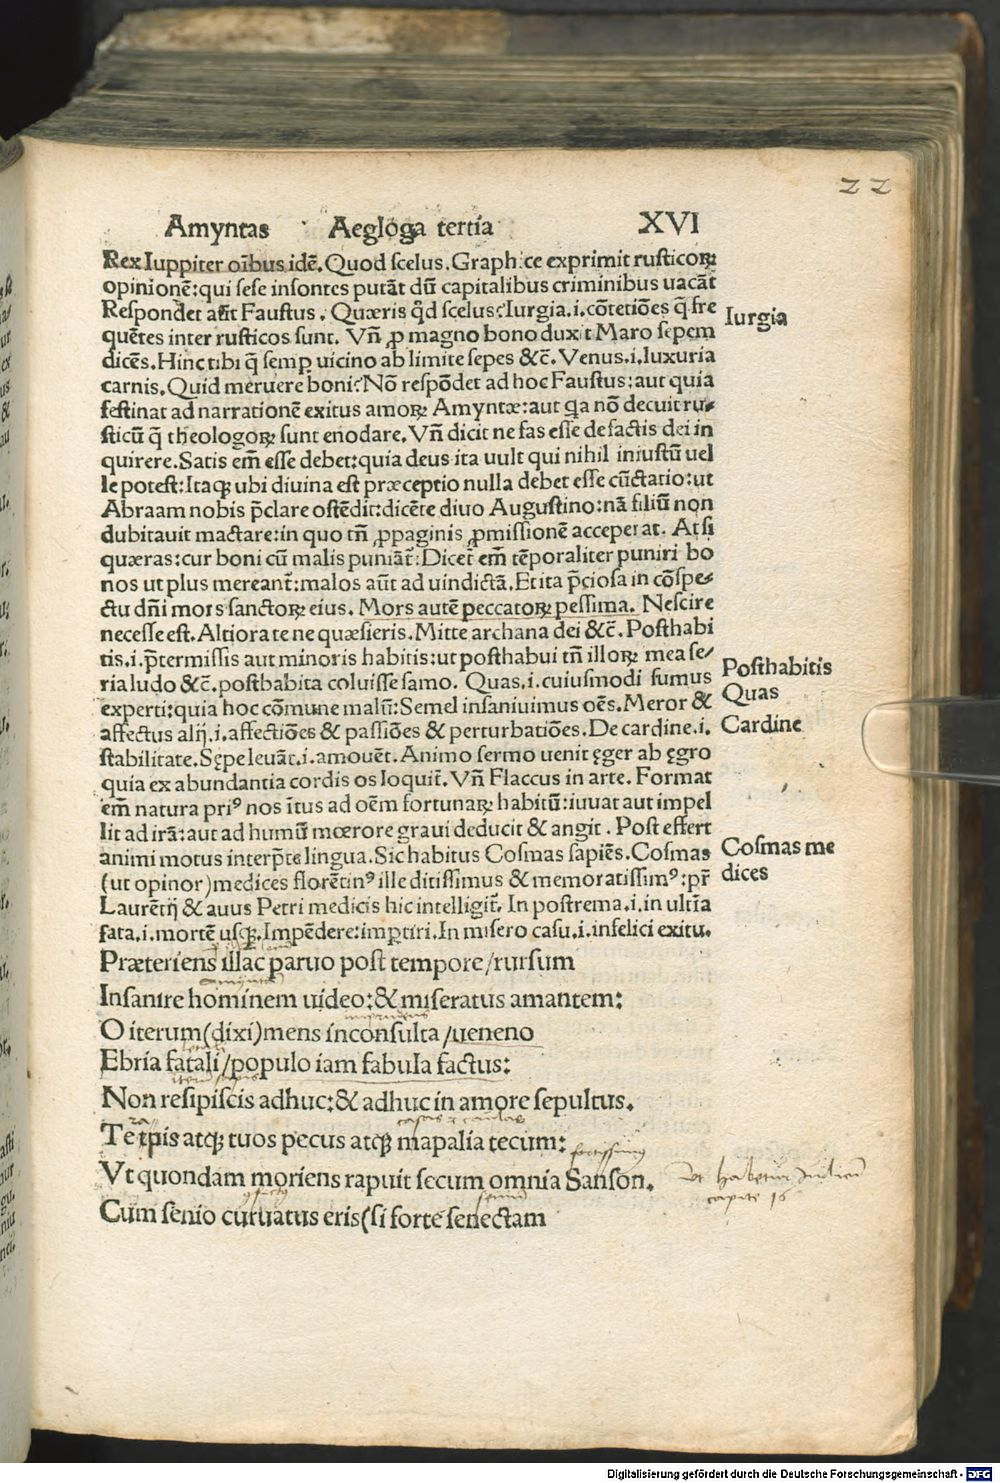 22
Amyntas Aegloga tertia XVI
Rex Iuppiter oībus idē. Quod scelus. Graphice exprimit rusticoꝝ
opinionē: qui sese insontes putāt dū capitalibus criminibus uacāt
Respondet aūt Faustus. Quæris qd̄ scelus? Iurgia.i.cōtetiōes q̄ fre
quētes inter rusticos sunt. Vn̄ ꝓ magno bono duxit Maro sepem
dicēs. Hinc tibi q̄ semꝑ uicino ab limite sepes &c̄. Venus.i.luxuria
carnis. Quid meruere boni? Nō respōdet ad hoc Faustus: aut quia
festinat ad narrationē exitus amoꝝ Amyntæ: aut qa nō decuit ru-
sticū q̄ theologoꝝ sunt enodare. Vn̄ dicit nefas esse de factis dei in
quirere. Satis em̄ esse debet: quia deus ita uult qui nihil iniustū uel
le potest: Itaqꝫ ubi diuina est præceptio nulla debet esse cūctatio: ut
Abraam nobis p̄clare ostēdit: dicēte diuo Augustino: nā filiū non
dubitauit mactare: in quo tn̄ ꝓpaginis ꝓmissionē acceperat. At si
quæras: cur boni cū malis puniāt̄: Dicet̄ em̄ tēporaliter puniri bo
nos ut plus mereant̄: malos aūt ad uindictā. Et ita p̄ciosa in cōspe-
ctu dn̄i mors sanctoꝝ eius. Mors autē peccatoꝝ pessima. Nescire
necesse est. Altiora te ne quæsieris. Mitte archana dei &c̄. Posthabi
tis.i.p̄termissis aut minoris habitis: ut posthabui tn̄ illoꝝ mea se-
ria ludo &c̄. posthabita coluisse samo. Quas.i.cuiusmodi sumus
experti: quia hoc cōmune malū: Semel insaniuimus oēs. Meror &
affectus alij.i.affectiōes & passiōes & perturbatiōes. De cardine.i.
stabilitate. Sępe leuāt.i.amouēt. Animo sermo uenit ęger ab ęgro
quia ex abundantia cordis os loquit̄. Vn̄ Flaccus in arte. Format
em̄ natura priꝰ nos ītus ad oēm fortunaꝝ habitū: iuuat aut impel
lit ad irā: aut ad humū mœrore graui deducit & angit. Post effert
animi motus interp̄te lingua. Sic habitus Cosmas sapiēs. Cosmas
(ut opinor) medices florētinꝰ ille ditissimus & memoratissimꝰ: pr̄
Laurētij & auus Petri medicis hic intelligit̄. In postrema.i.in ultīa
fata.i.mortē usqꝫ. Impēdere: imꝑtiri. In misero casu.i.infelici exitu.
Iurgia
Posthabitis
Quas
Cardine
Cosmas me
dices
Præteriens illac paruo post tempore/rursum
Insanire hominem uideo: & miseratus amantem:
O iterum (dixi) mens inconsulta/ueneno
Ebria fatali/populo iam fabula factus:
Non resipiscis adhuc: & adhuc in amore sepultus.
Te ip̄is atqꝫ tuos pecus atqꝫ mapalia tecum:
fortissimus
Vt quondam moriens rapuit secum omnia Sanson.
Vt habetur Iudicū
capite 16
Cum senio curuatus eris (si forte senectam
Digitalisierung gefördert durch die Deutsche Forschungsgemeinschaft - DFG